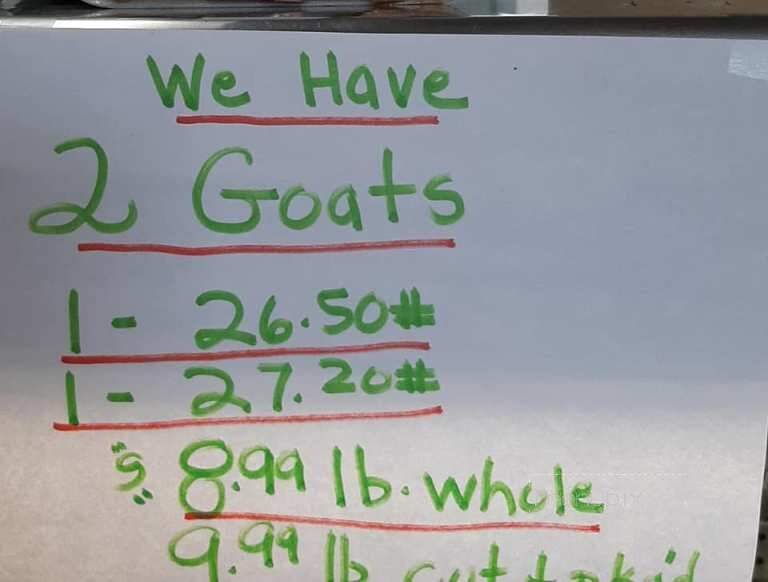 We Have
2 Goats
1 - 26.50#
1 - 27.20#
$ 8.99 lb. whole
9.99 lb cut